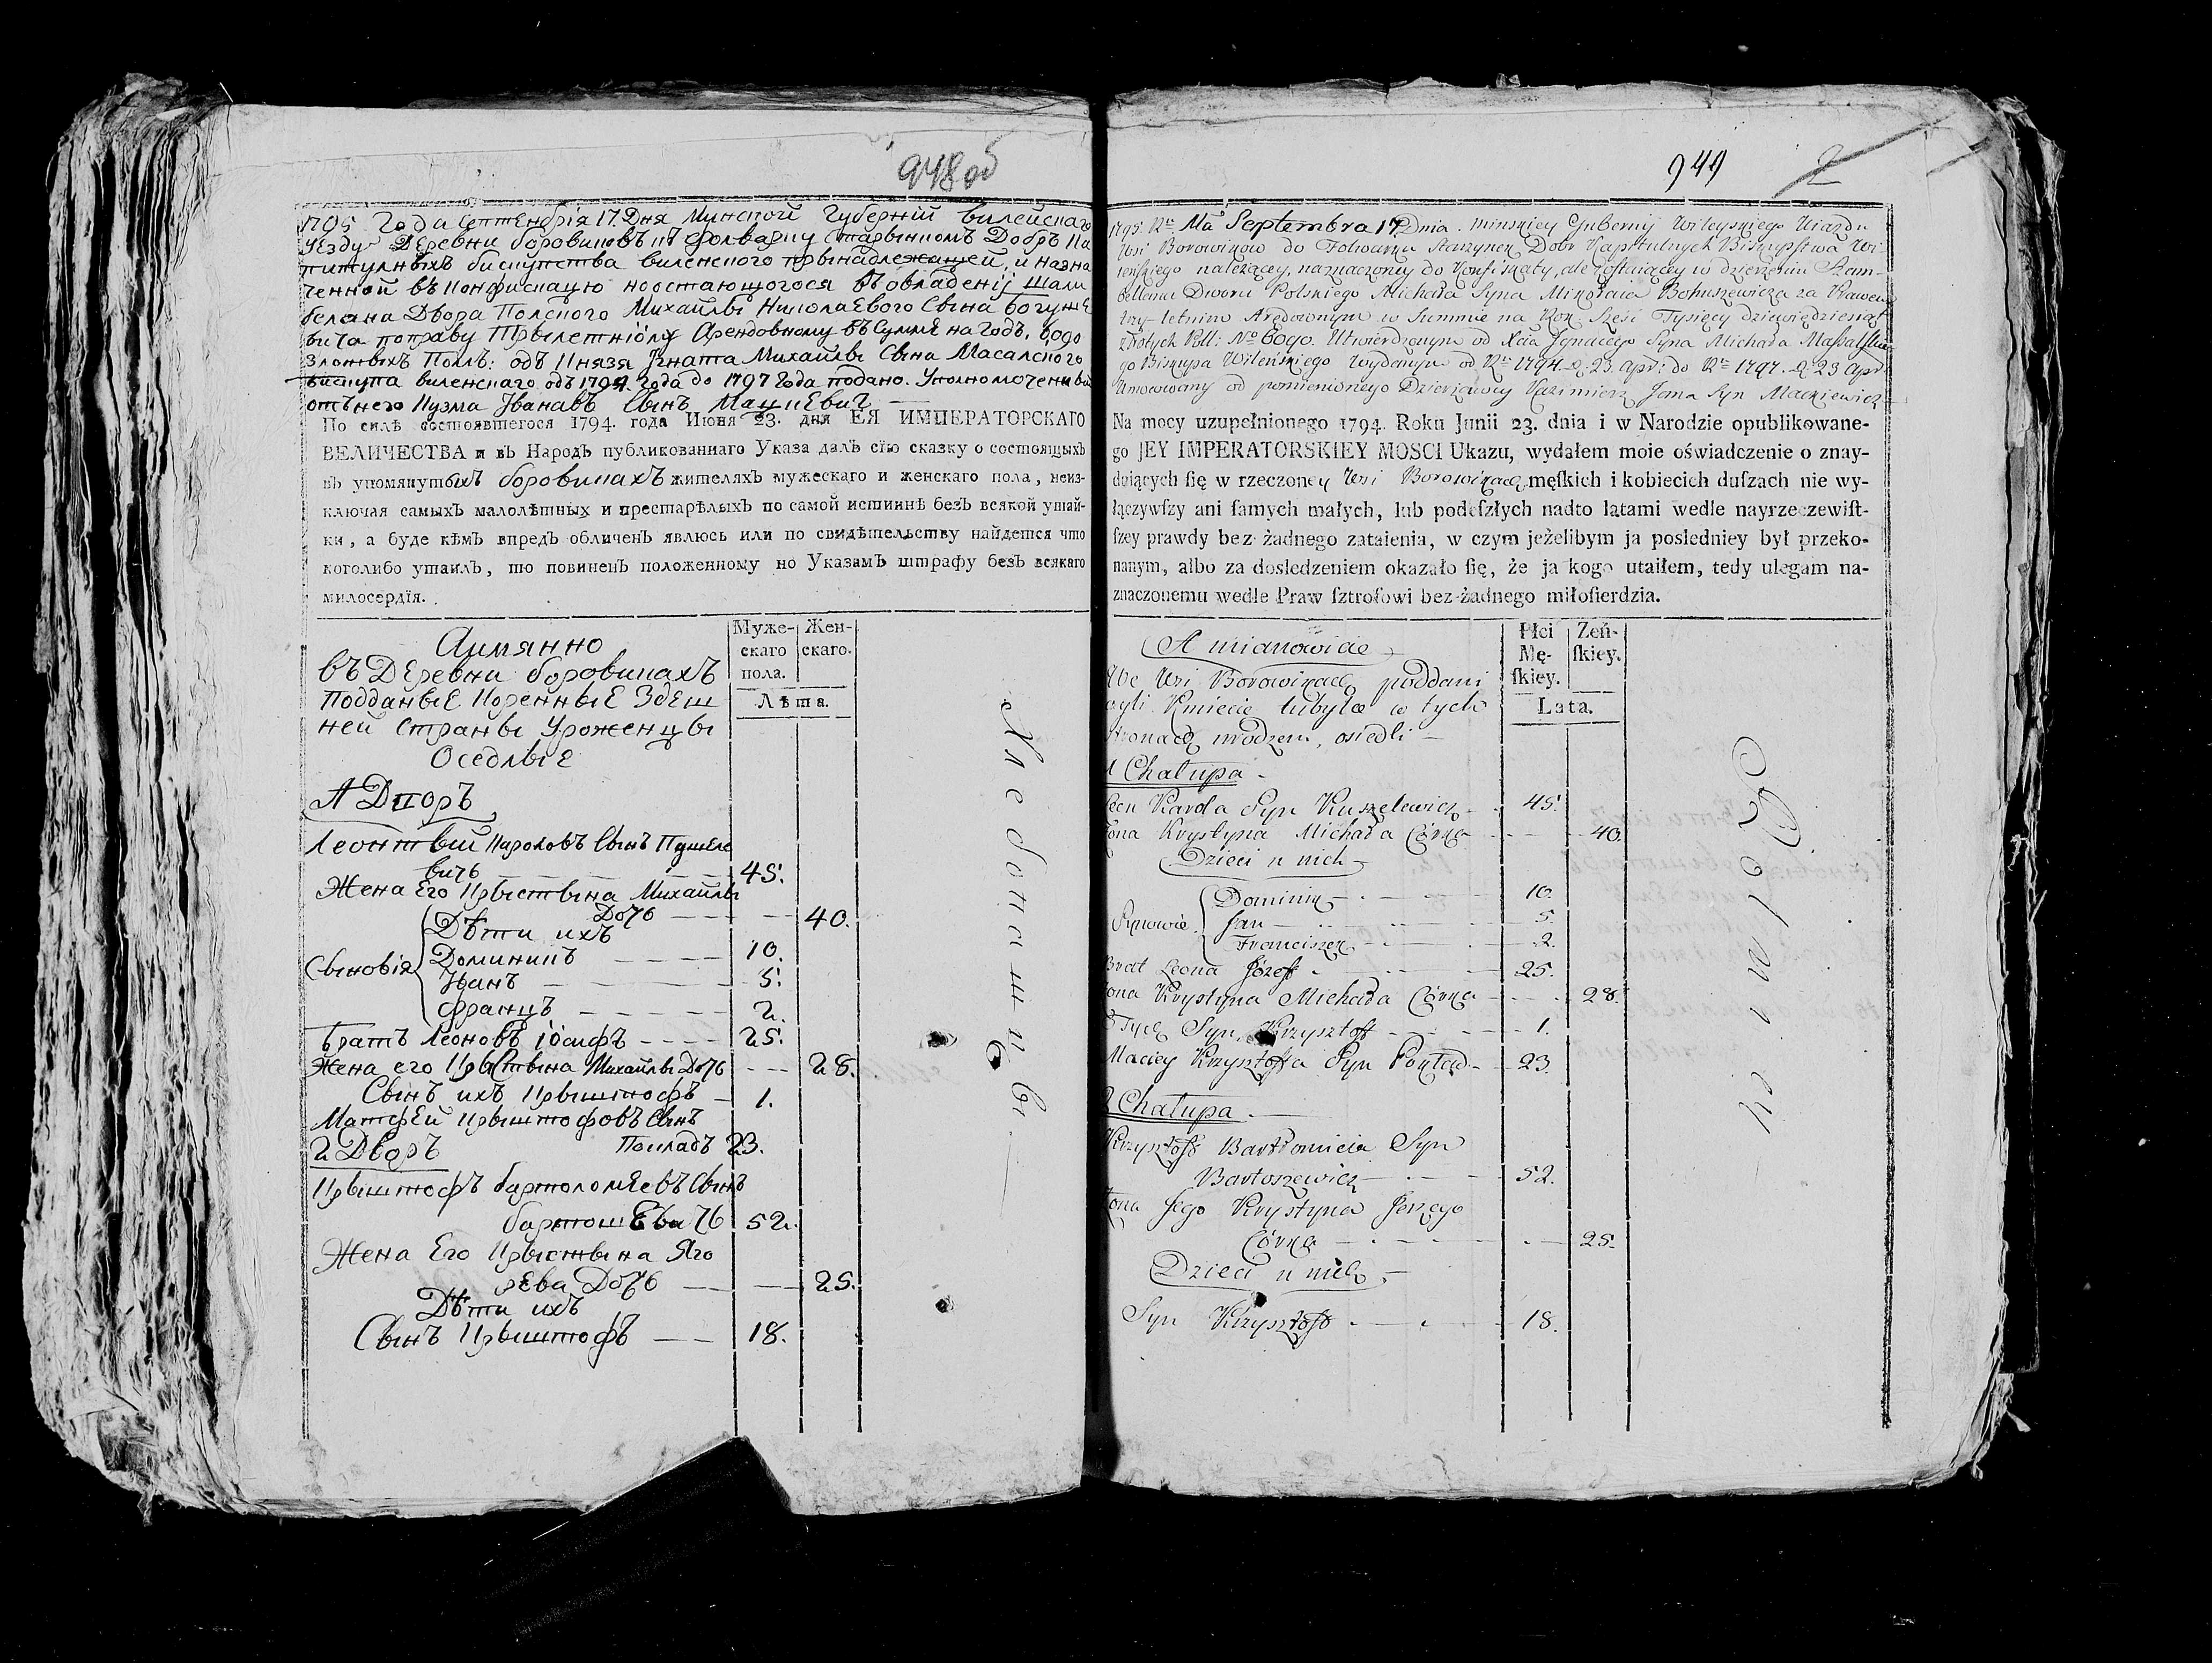 948 об
1795 Года Септембрія 17. Дня Минской Губерній вилейскаго
уезду Деревни боровиковъ къ фолварку Старынкомъ Добръ Ка
питулныхъ бискупства виленского прынадлежащей, и назна
ченной въ конфискацію но остающогося въ овладеніј Шам
белана Двора Полского Михайлы Николаевого Сына богуше
вича поправу Трылетніому Арендовному въ Сумме на годъ, 6,090
Злотыхъ Полъ: одъ Князя Јгната Михайлы Сына Масалского
бискупа виленскаго одъ 1794 года до 1797 Года подано. Уполномоченны
отънего Кузма Јвановъ Сынъ Мацкевич
По силѣ состоявшегося 1794. года Июня 23. дня ЕЯ ИМПЕРАТОРСКАГО
ВЕЛИЧЕСТВА и въ Народъ публикованнаго Указа далъ сїю сказку о состоящыхъ
въ упомянутыхъ боровикахъ жителяхъ мужескаго и женскаго пола, неиз-
ключая самыхъ малолѣтныхъ и престарѣлыхъ по самой истиннѣ безъ всякой утай-
ки, а буде кѣмъ впредъ обличенъ явлюсь или по свидѣтельству найдется что
коголибо утаилъ, то повиненъ положенному по Указамъ штрафу безъ всякаго
милосердїя.
Муже- Жен-
скаго скаго.
пола.
Лѣта.
Аимянно
въ Деревни боровикахъ
подданые коренные Здеш
ней Страны Уроженцы
Оседлые
А Дворъ
Леонтвий Кароловъ Сынъ Кушеле
вичь 45.
Жена Его Крыстына Михайлы
Дочь 40.
Дѣти ихъ
Сыновія Доминикъ 10.
Јванъ 5.
Францъ 2.
братъ Леоновъ іосифъ 25.
Жена его Крыстына Михайлы Дочь 28.
Сынъ ихъ Крыштофъ 1.
Матфей Крыштофовъ Сынъ
2 Дворъ Покладъ 23.
Крыштофъ бартоломеевъ Сынъ
бартошевичь 52.
Жена Его Крыстына Яго
рева Дочь 25.
Дѣти ихъ
Сынъ Крыштофъ 18.
949 2
1795. Rku Ma Septembra 17 Dnia. Minskiey Gubernij Wileyskiego Ujazdu
Wsi Borowikow do Folwarku Starzynek Dobr Kapitulnych Biskupstwa Wi
leńskiego należącey, naznaczoney do Konfiskaty, ale zostaiącey w dzierżeniu Szam-
bellana Dworu Polskiego Michała Syna Mikołaia Bohuszewicza za Prawem
trzy-letnim Arędownym w Summie na Rok Sześć Tysięcy dziewiędziesiąt
złotych Poll: No 6090. Utwierdzonym od Xcia Jgnacego Syna Michała Massalskie
go Biskupa Wileńskiego wydanym od Rku 1794. D. 23. Apr: do Rku 1797. D. 23 Apr
Umocowany od pomienionego Dzierżawcy Kazimierz Jana Syn Mackiewicz
Na mocy uzupełnionego 1794. Roku Junii 23. dnia i w Narodzie opublikowane-
go JEY IMPERATORSKIEY MOSCI Ukazu, wydałem moie oświadczenie o znay-
duiących ſię w rzeczoney Wsi Borowikach męſkich i kobiecich duſzach nie wy-
łączywſzy ani ſamych małych, lub podeſzłych nadto latami wedle nayrzeczewiſt-
ſzey prawdy bez żadnego zataienia, w czym jeżelibym ja posledniey był przeko-
nanym, albo za dosledzeniem okazało ſię, że ja kogo utaiłem, tedy ulegam na-
znaczonemu wedle Praw ſztrofowi bez żadnego miłoſierdzia.
Płci Zeń-
Mę- ſkiey.
ſkiey.
Lata.
A mianowicie
We Wsi Borowikach poddani
czyli Kmiecie tubylce w tych
stronach urodzeni, osiedli
1 Chałupa
Leon Karola Syn Kuszelewicz 45.
Żona Krystyna Michała Córka 40.
Dzieci u nich
Synowie Dominik 10.
Jan 5.
Franciszek 2.
Brat Leona Józeff 25.
Żona Krystyna Michała Córka 28.
Tych Syn Krzysztoff 1.
Maciey Krzysztoffa Syn Pokład 23.
2 Chałupa
Krzysztoff Bartłomieia Syn
Bartoszewicz 52.
Żona Jego Krystyna Jerzego
Córka 25.
Dzieci u nich
Syn Krzysztoff 18.